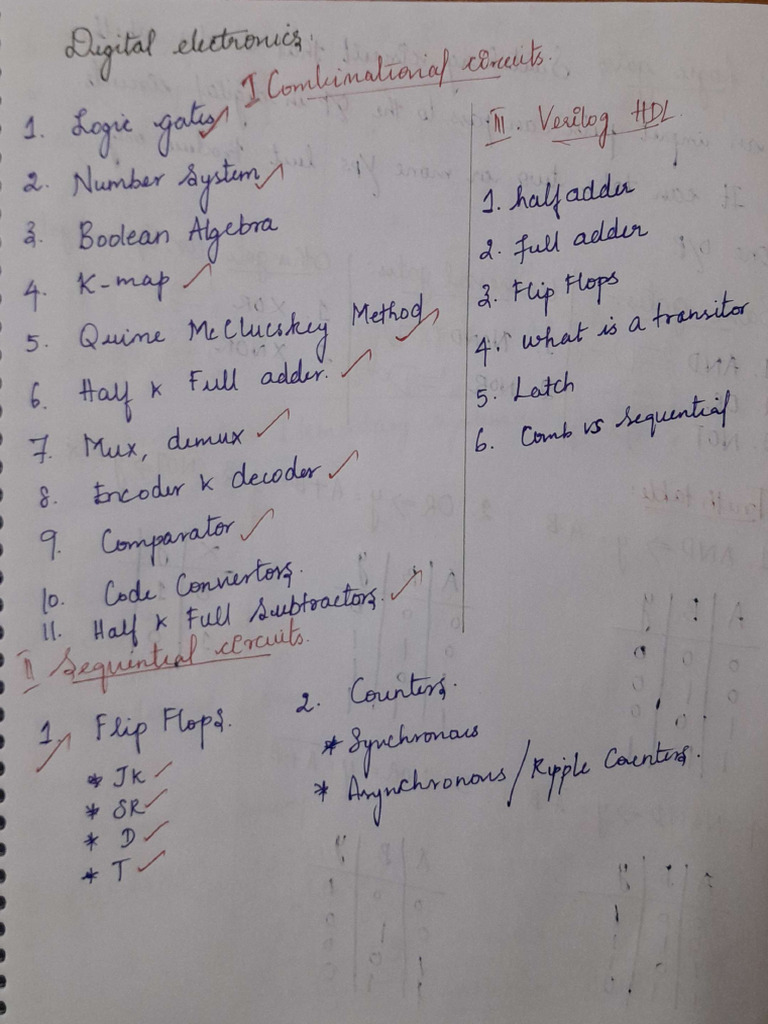 Digital electronics:
I Combinational circuits.
1. Logic gates
2. Number System
3. Boolean Algebra
4. K-map
5. Quine McCluskey Method
6. Half & Full adder.
7. Mux, demux
8. Encoder & decoder
9. Comparator
10. Code Convertors.
11. Half & Full Subtractors.
III. Verilog HDL
1. half adder
2. full adder
3. Flip Flops
4. what is a transitor
5. Latch
6. Comb vs Sequential
II Sequential circuits.
1. Flip Flops.
* JK
* SR
* D
* T
2. Counters.
* Synchronous
* Asynchronous / Ripple Counters.